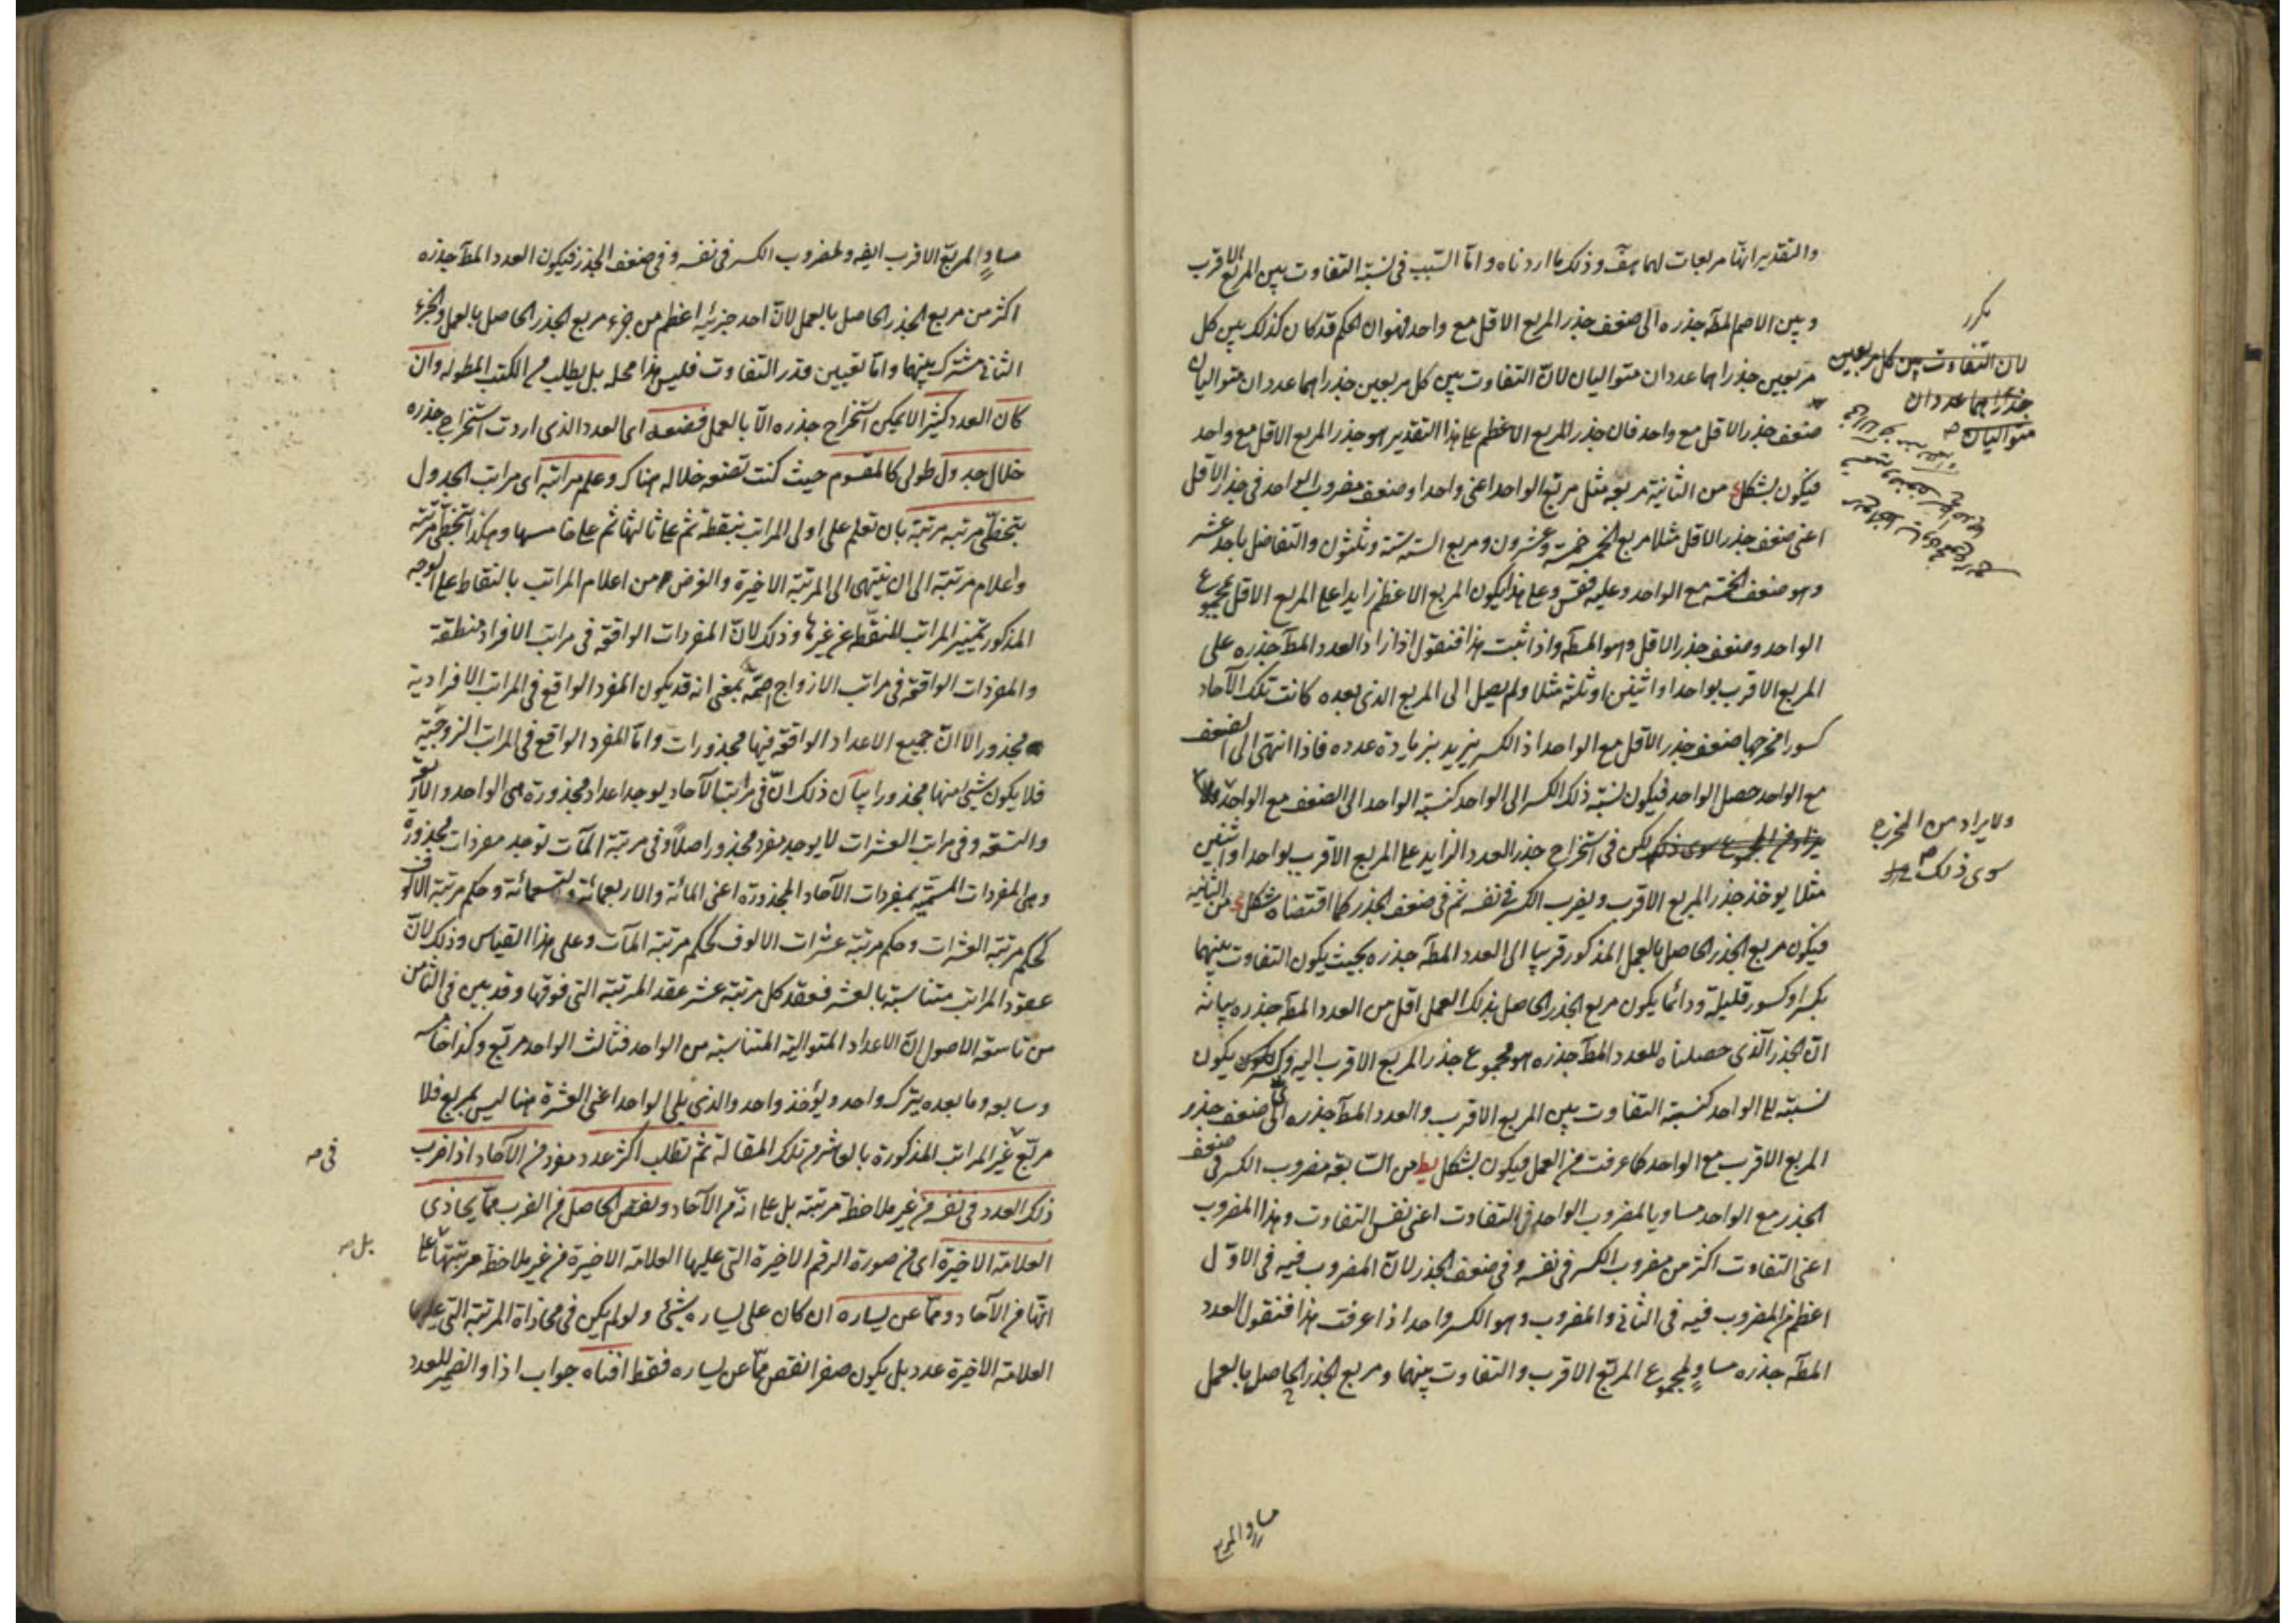 والتقدير انها مربعات لهما هف وذلك ما اردناه واما السبب في نسبة التفاوت بين المربع الاقرب
وبين الاصم المط جذره الى ضعف جذر المربع الاقل مع واحد فهو ان الحكم قد كان كذلك بين كل
مربعين جذراهما عددان متواليان لان التفاوت بين كل مربعين جذراهما عددان متواليان
ضعف جذر الاقل مع واحد فان جذر المربع الاعظم على هذا التقدير هو جذر المربع الاقل مع واحد
فيكون بشكل من الثانية مربعه مثل مربع الواحد اعنى واحدا وضعف مضروب الواحد في جذر الاقل
اعنى ضعف جذر الاقل مثلا مربع الخمسة خمسة وعشرون ومربع الستة ستة وثلثون والتفاضل باحد عشر
وهو ضعف الخمسة مع الواحد وعليه فقس وعلى هذا يكون المربع الاعظم زايدا على المربع الاقل بمجموع
الواحد وضعف جذر الاقل وهو المط واذا ثبت هذا فنقول اذا زاد العدد المط جذره على
المربع الاقرب بواحد او اثنين او ثلثة مثلا ولم يصل الى المربع الذى بعده كانت تلك الآحاد
كسورا مخرجها ضعف جذر الاقل مع الواحد اذ الكسر يزيد بزيادة عدده فاذا انتهى الى الضعف
مع الواحد حصل الواحد فيكون نسبة ذلك الكسر الى الواحد كنسبة الواحد الى الضعف مع الواحد ولا
يزاد في المجموع سوى ذلك لكن في استخراج جذر العدد الزايد على المربع الاقرب بواحد او اثنين
مثلا يوخذ جذر المربع الاقرب ويضرب الكسر في نفسه ثم في ضعف الجذر كما اقتضاه شكل من الثانية
فيكون مربع الجذر الحاصل بالعمل المذكور قريبا الى العدد المط جذره بحيث يكون التفاوت بينهما
بكسر او كسور قليلة ودائما يكون مربع الجذر الحاصل بذلك العمل اقل من العدد المط جذره بيانه
ان الجذر الذى حصلناه للعدد المط جذره هو مجموع جذر المربع الاقرب اليه وكسر يكون
نسبته الى الواحد كنسبة التفاوت بين المربع الاقرب والعدد المط جذره الى ضعف جذر
المربع الاقرب مع الواحد كما عرفت في العمل فيكون بشكل يط من السابعة مضروب الكسر في ضعف
الجذر مع الواحد مساويا لمضروب الواحد في التفاوت اعنى نفس التفاوت وهذا المضروب
اعنى التفاوت اكثر من مضروب الكسر في نفسه وفي ضعف الجذر لان المضروب فيه في الاول
اعظم من المضروب فيه في الثاني والمضروب وهو الكسر واحد اذا عرفت هذا فنقول العدد
المط جذره مساو لمجموع المربع الاقرب والتفاوت بينهما ومربع الجذر الحاصل بالعمل
مساو المربع
مكرر
لان التفاوت بين كل مربعين
جذراهما عددان
متواليان
ولا يراد من المخرج
سوى ذلك
مساو للمربع الاقرب ايضه ولمضروب الكسر في نفسه وفي ضعف الجذر فيكون العدد المط جذره
اكثر من مربع الجذر الحاصل بالعمل لان احد جزئيه اعظم من جزء مربع الجذر الحاصل بالعمل والجزء
الثاني مشترك بينهما واما تعيين قدر التفاوت فليس هذا محله بل يطلب من الكتب المطوله وان
كان العدد كثيرا لا يمكن استخراج جذره الا بالعمل فضعه اى العدد الذى اردت استخراج جذره
خلال جدول طولى كالمقسوم حيث كنت تضعه خلاله هناك وعلم مراتبه اى مراتب الجدول
بتخطى مرتبة مرتبة بان تعلم على اولى المراتب بنقطة ثم على ثالثها ثم على خامسها وهكذا بتخطى مرتبة
واعلام مرتبة الى ان ينتهى الى المرتبة الاخيرة والغرض من اعلام المراتب بالنقاط على الوجه
المذكور تمييز المراتب المنطقة عن غيرها وذلك لان المفردات الواقعة في مراتب الافراد منطقة
والمفردات الواقعة في مراتب الازواج اصمة بمعنى انه قد يكون المفرد الواقع في المراتب الافرادية
مجذورا لا ان جميع الاعداد الواقعة فيها مجذورات واما المفرد الواقع في المراتب الزوجية
فلا يكون شيئ منها مجذورا بيان ذلك ان في مراتب الآحاد يوجد اعداد مجذورة هى الواحد والاربعة
والتسعة وفي مراتب العشرات لا يوجد مفرد مجذور اصلا وفي مرتبة المآت توجد مفردات مجذورة
وهى المفردات المسمية بمفردات الآحاد المجذورة اعنى المائة والاربعمائة والتسعمائة وحكم مرتبة الالوف
كحكم مرتبة العشرات وحكم مرتبة عشرات الالوف كحكم مرتبة المآت وعلى هذا القياس وذلك لان
عقود المراتب متناسبة بالعشر فعقد كل مرتبة عشر عقد المرتبة التى فوقها وقد بين في الثامن
من تاسعة الاصول ان الاعداد المتوالية المتناسبة من الواحد فثالث الواحد مربع وكذا خامسه
وسابعه وما بعده يترك واحد ويؤخذ واحد والذى يلى الواحد اعنى العشرة هنا ليس بمربع فلا
مربع غير المراتب المذكورة بالعاشر من تلك المقالة ثم تطلب اكثر عدد مفرد من الآحاد اذا ضرب
ذلك العدد في نفسه من غير ملاحظة مرتبته بل على انه من الآحاد ونقص الحاصل من الضرب مما يحاذى
العلامة الاخيرة اى من صورة الرقم الاخيرة التى عليها العلامة الاخيرة من غير ملاحظة مرتبتها على
انها من الآحاد ومما عن يساره ان كان على يساره شيئ ولو لم يكن في محاذاة المرتبة التى عليها
العلامة الاخيرة عدد بل يكون صفرا نقص مما عن يساره فقط افناه جواب اذا والضمير للعدد